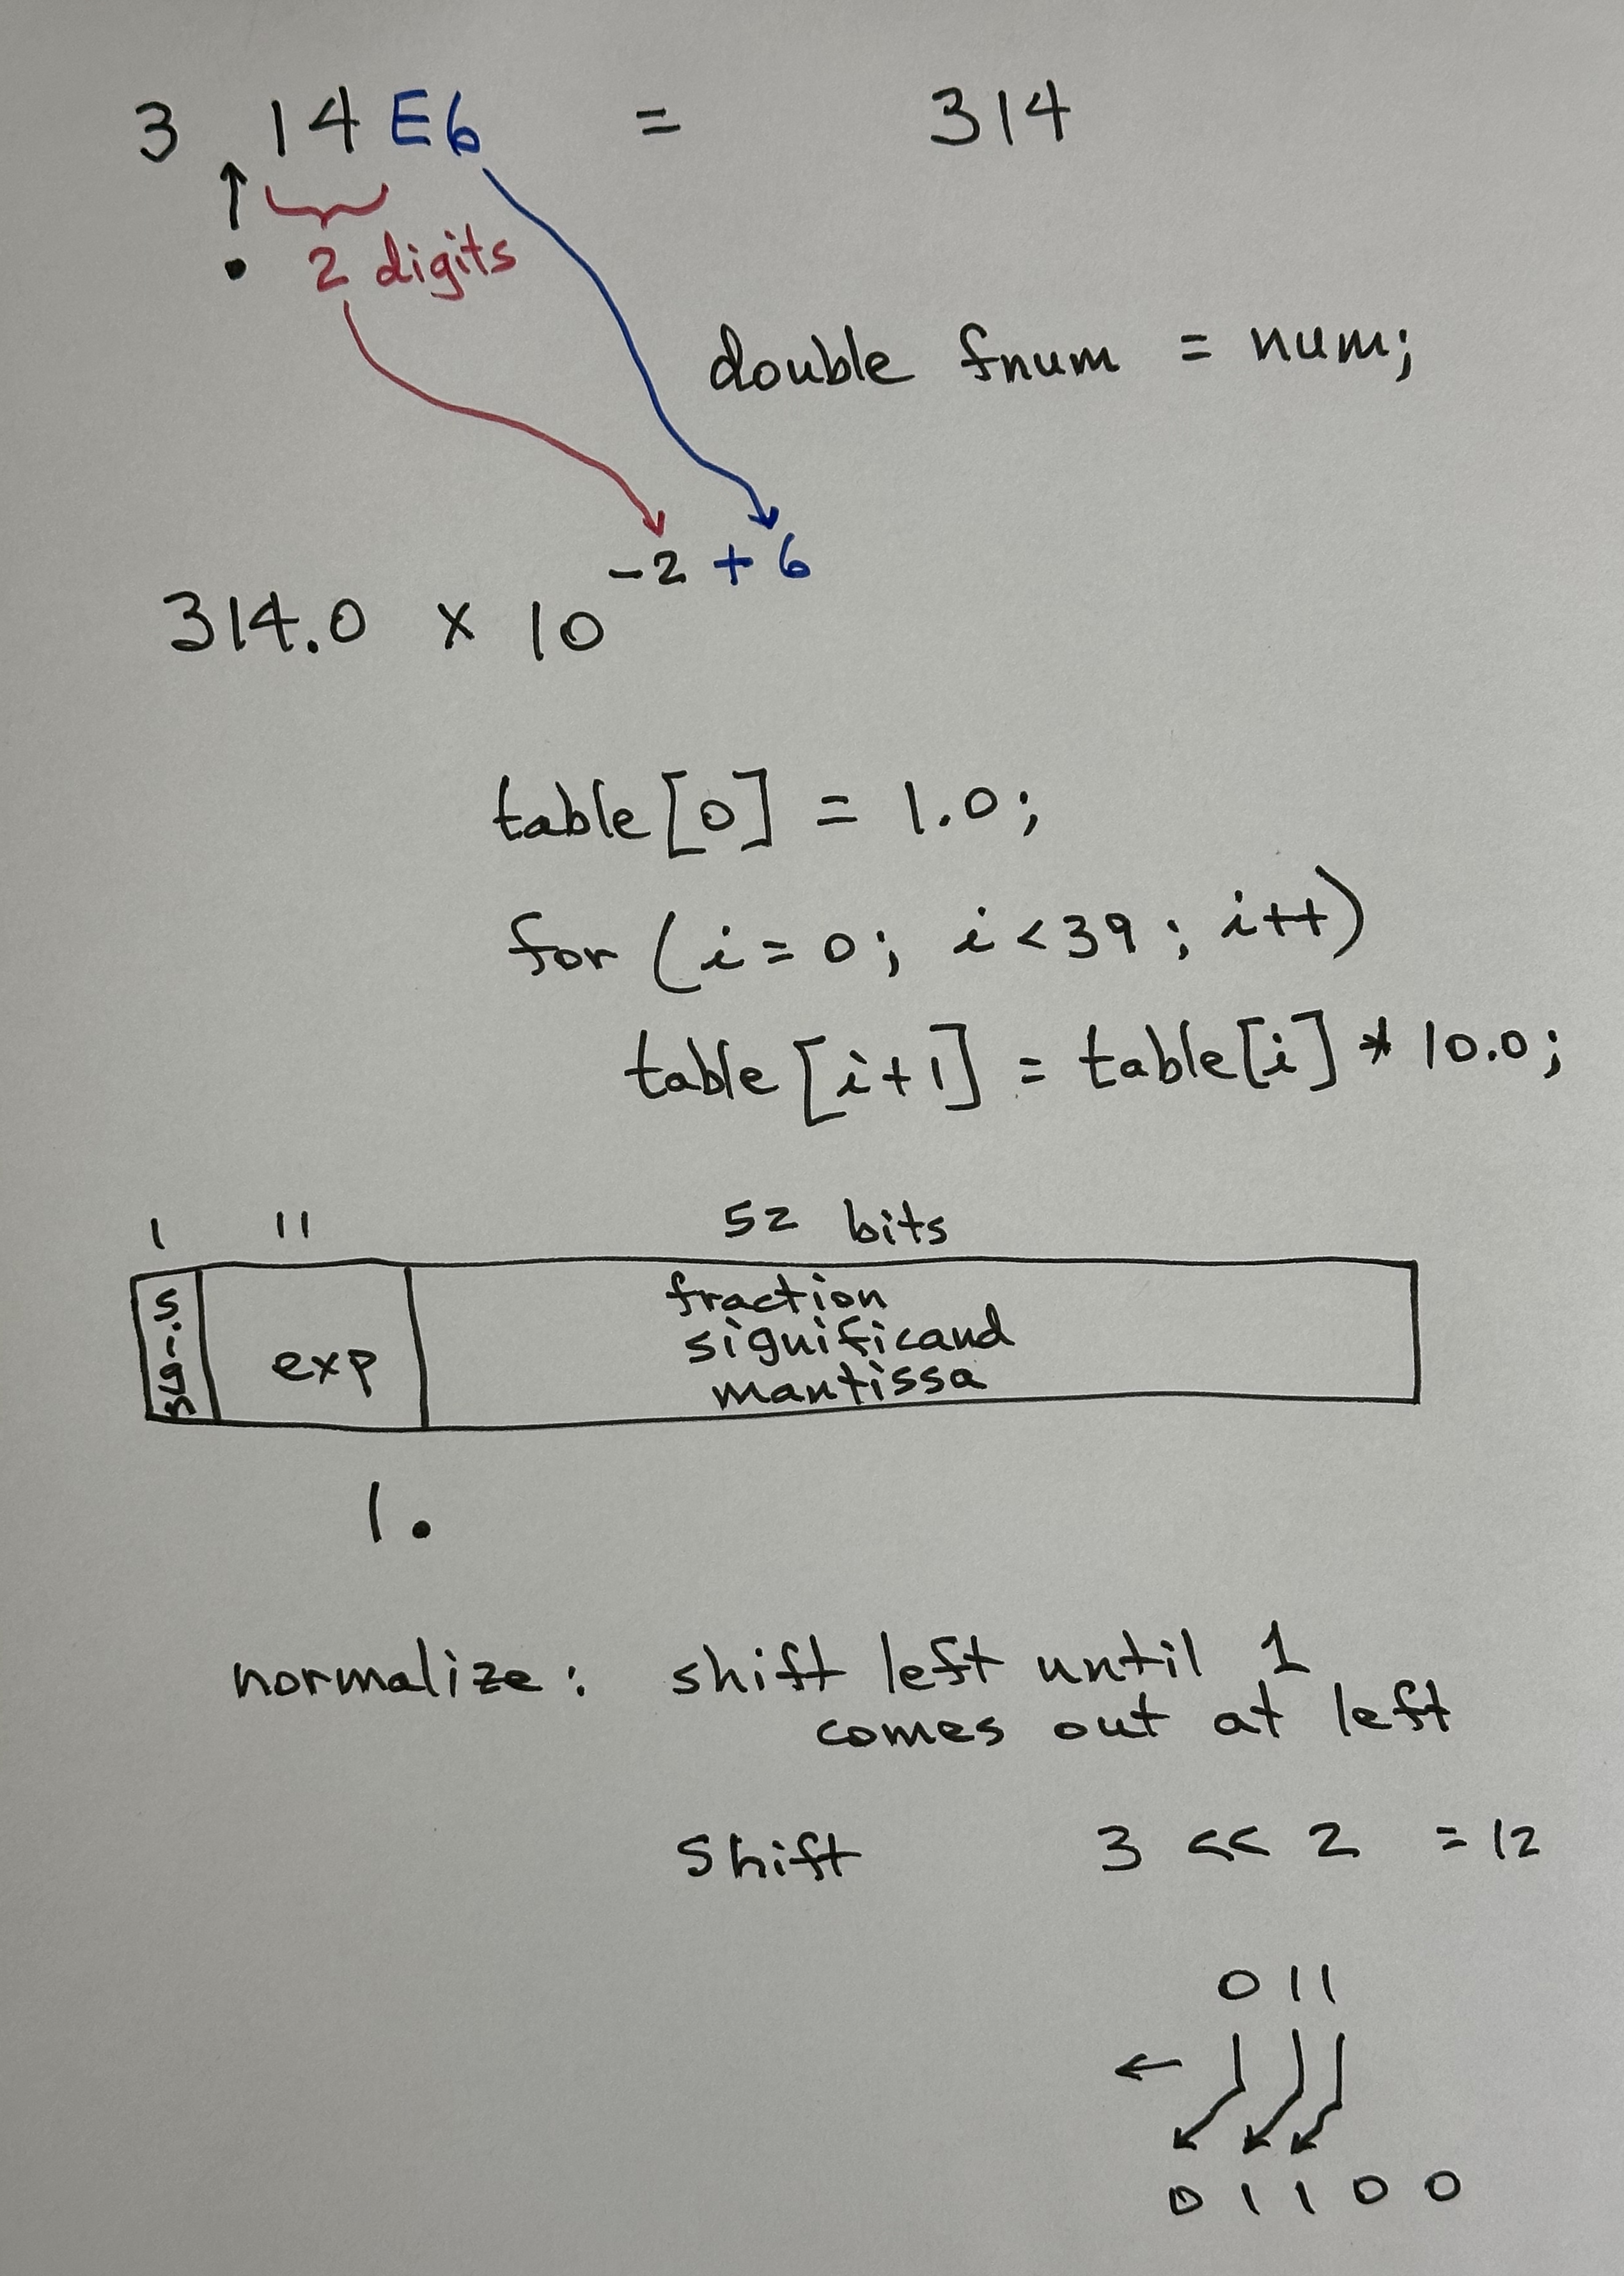 3 14 E6 = 314
. 2 digits
double fnum = num;
-2 + 6
314.0 x 10
table[0] = 1.0;
for (i=0; i<39; i++)
table[i+1] = table[i] * 10.0;
1 11 52 bits
sign exp fraction
significand
mantissa
1.
normalize: shift left until 1
comes out at left
shift 3 << 2 = 12
011
01100